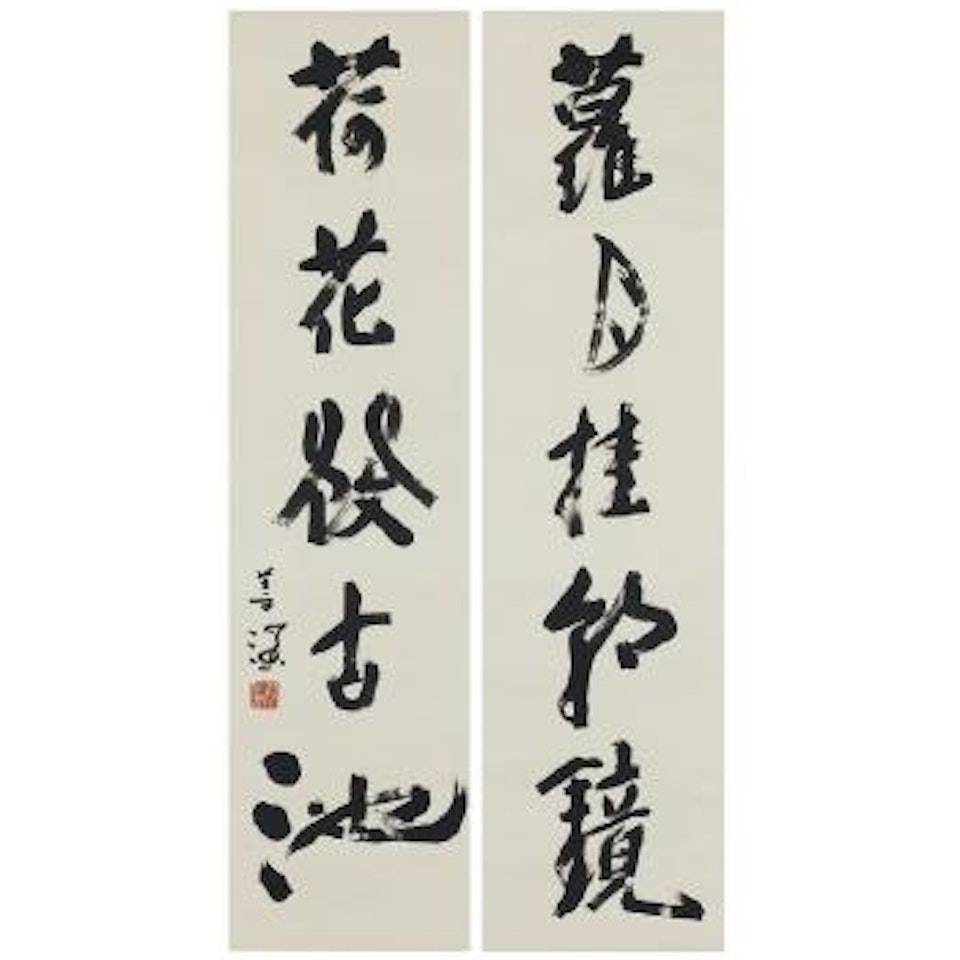 蘿月挂朝鏡
荷花發古池